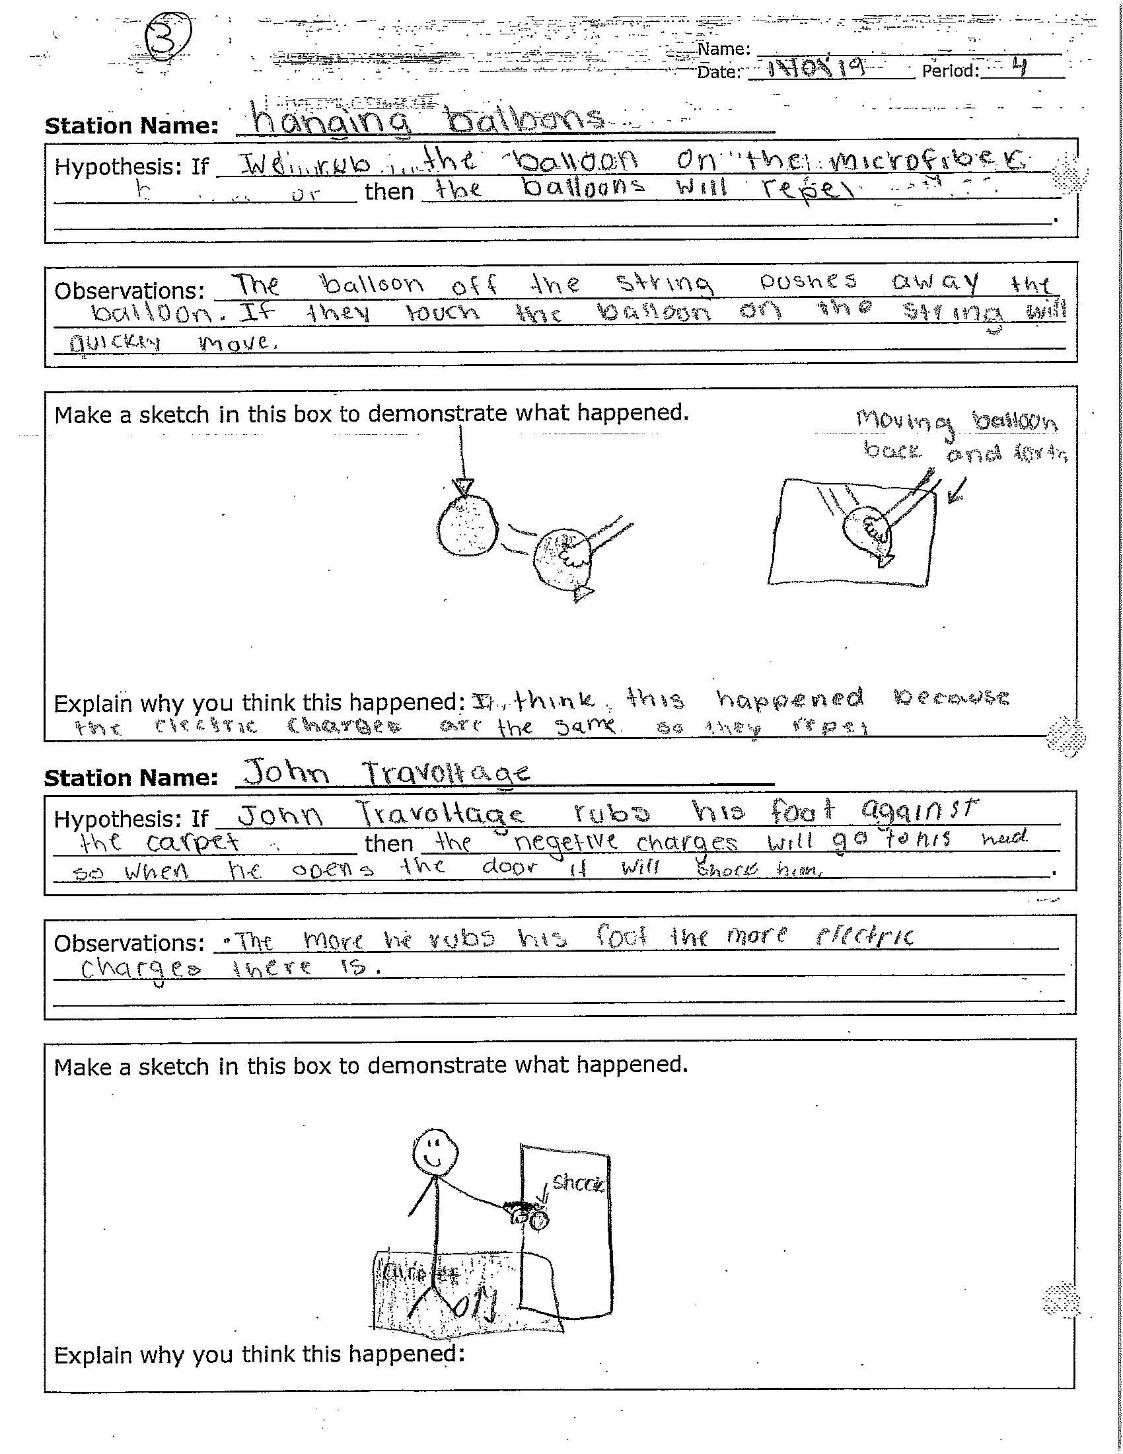 3
Name:
Date: Period: 4
Station Name: hanging balloons
Hypothesis: If We rub the balloon on the microfiber
or then the balloons will repel
.
Observations: The balloon off the string pushes away the
balloon. If they touch the balloon on the string will
quickly move.
Make a sketch in this box to demonstrate what happened.
Moving balloon
back and forth
Explain why you think this happened: I think this happened because
the electric charges are the same so they repel
Station Name: John Travoltage
Hypothesis: If John Travoltage rubs his foot against
the carpet then the negetive charges will go to his
so when he opens the door it will shock him.
.
Observations: • The more he rubs his foot the more electric
charges there is.
Make a sketch in this box to demonstrate what happened.
Shock
carpet
Explain why you think this happened: